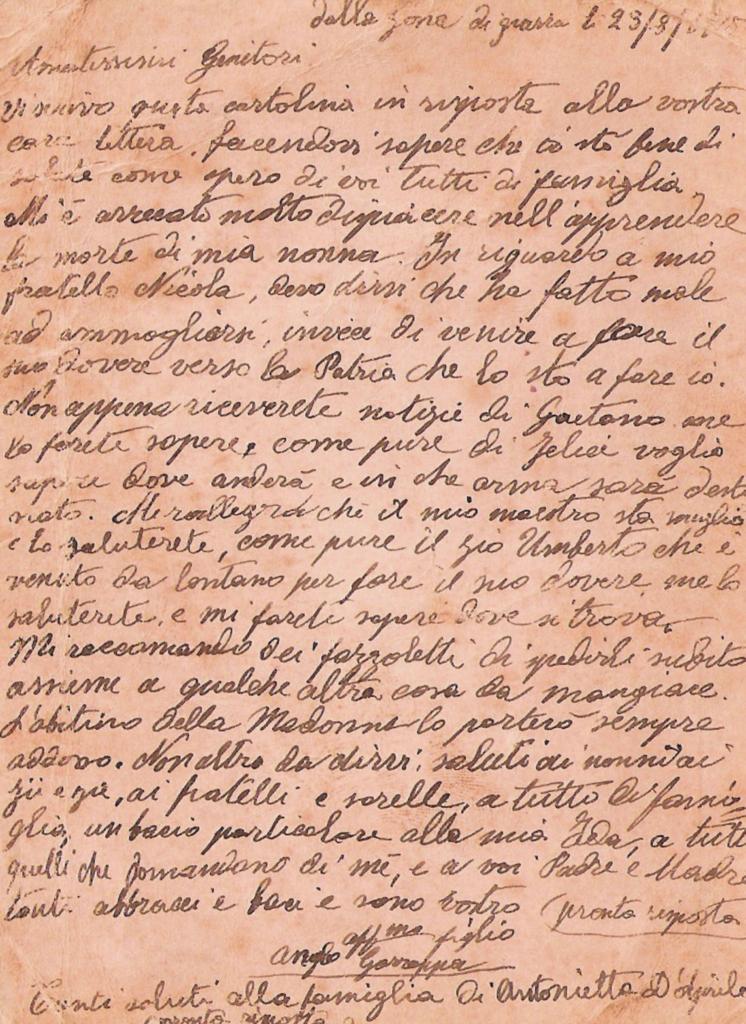 dalla zona di guerra li 23/8/
Amatissimi Genitori.
Vi scrivo questa cartolina in risposta alla vostra
cara lettera, facendovi sapere che io stò bene di
salute come spero di voi tutti di famiglia.
Mi è arrecato molto dispiacere nell'apprendere
la morte di mia nonna. In riguardo a mio
fratello Nicola, devo dirvi che ha fatto male
ad ammogliarsi, invece di venire a fare il
suo dovere verso la Patria che lo sto a fare io.
Non appena riceverete notizie di Gaetano me
lo farete sapere, come pure di Felice voglio
sapere dove anderà e in che arma sarà desti
nato. Mi rallegra che il mio maestro sta meglio
e lo saluterete, come pure il zio Umberto che è
venuto da lontano per fare il suo dovere, me lo
saluterete, e mi farete sapere dove si trova.
Mi raccomando dei fazzoletti di spedirli subito
assieme a qualche altra cosa da mangiare.
L'abitino della Madonna lo porterò sempre
addosso. Non altro da dirvi: saluti ai nonni ai
zii e zie, ai fratelli e sorelle, a tutti di fami
glia, un bacio particolare alla mia Ida, a tutti
quelli che domandano di me, e a voi Padre e Madre
tanti abbracci e baci e sono vostro (pronta risposta
aff mo figlio
Angelo Garrappa
Tanti saluti alla famiglia di Antonietta D'Aprile
pronta risposta